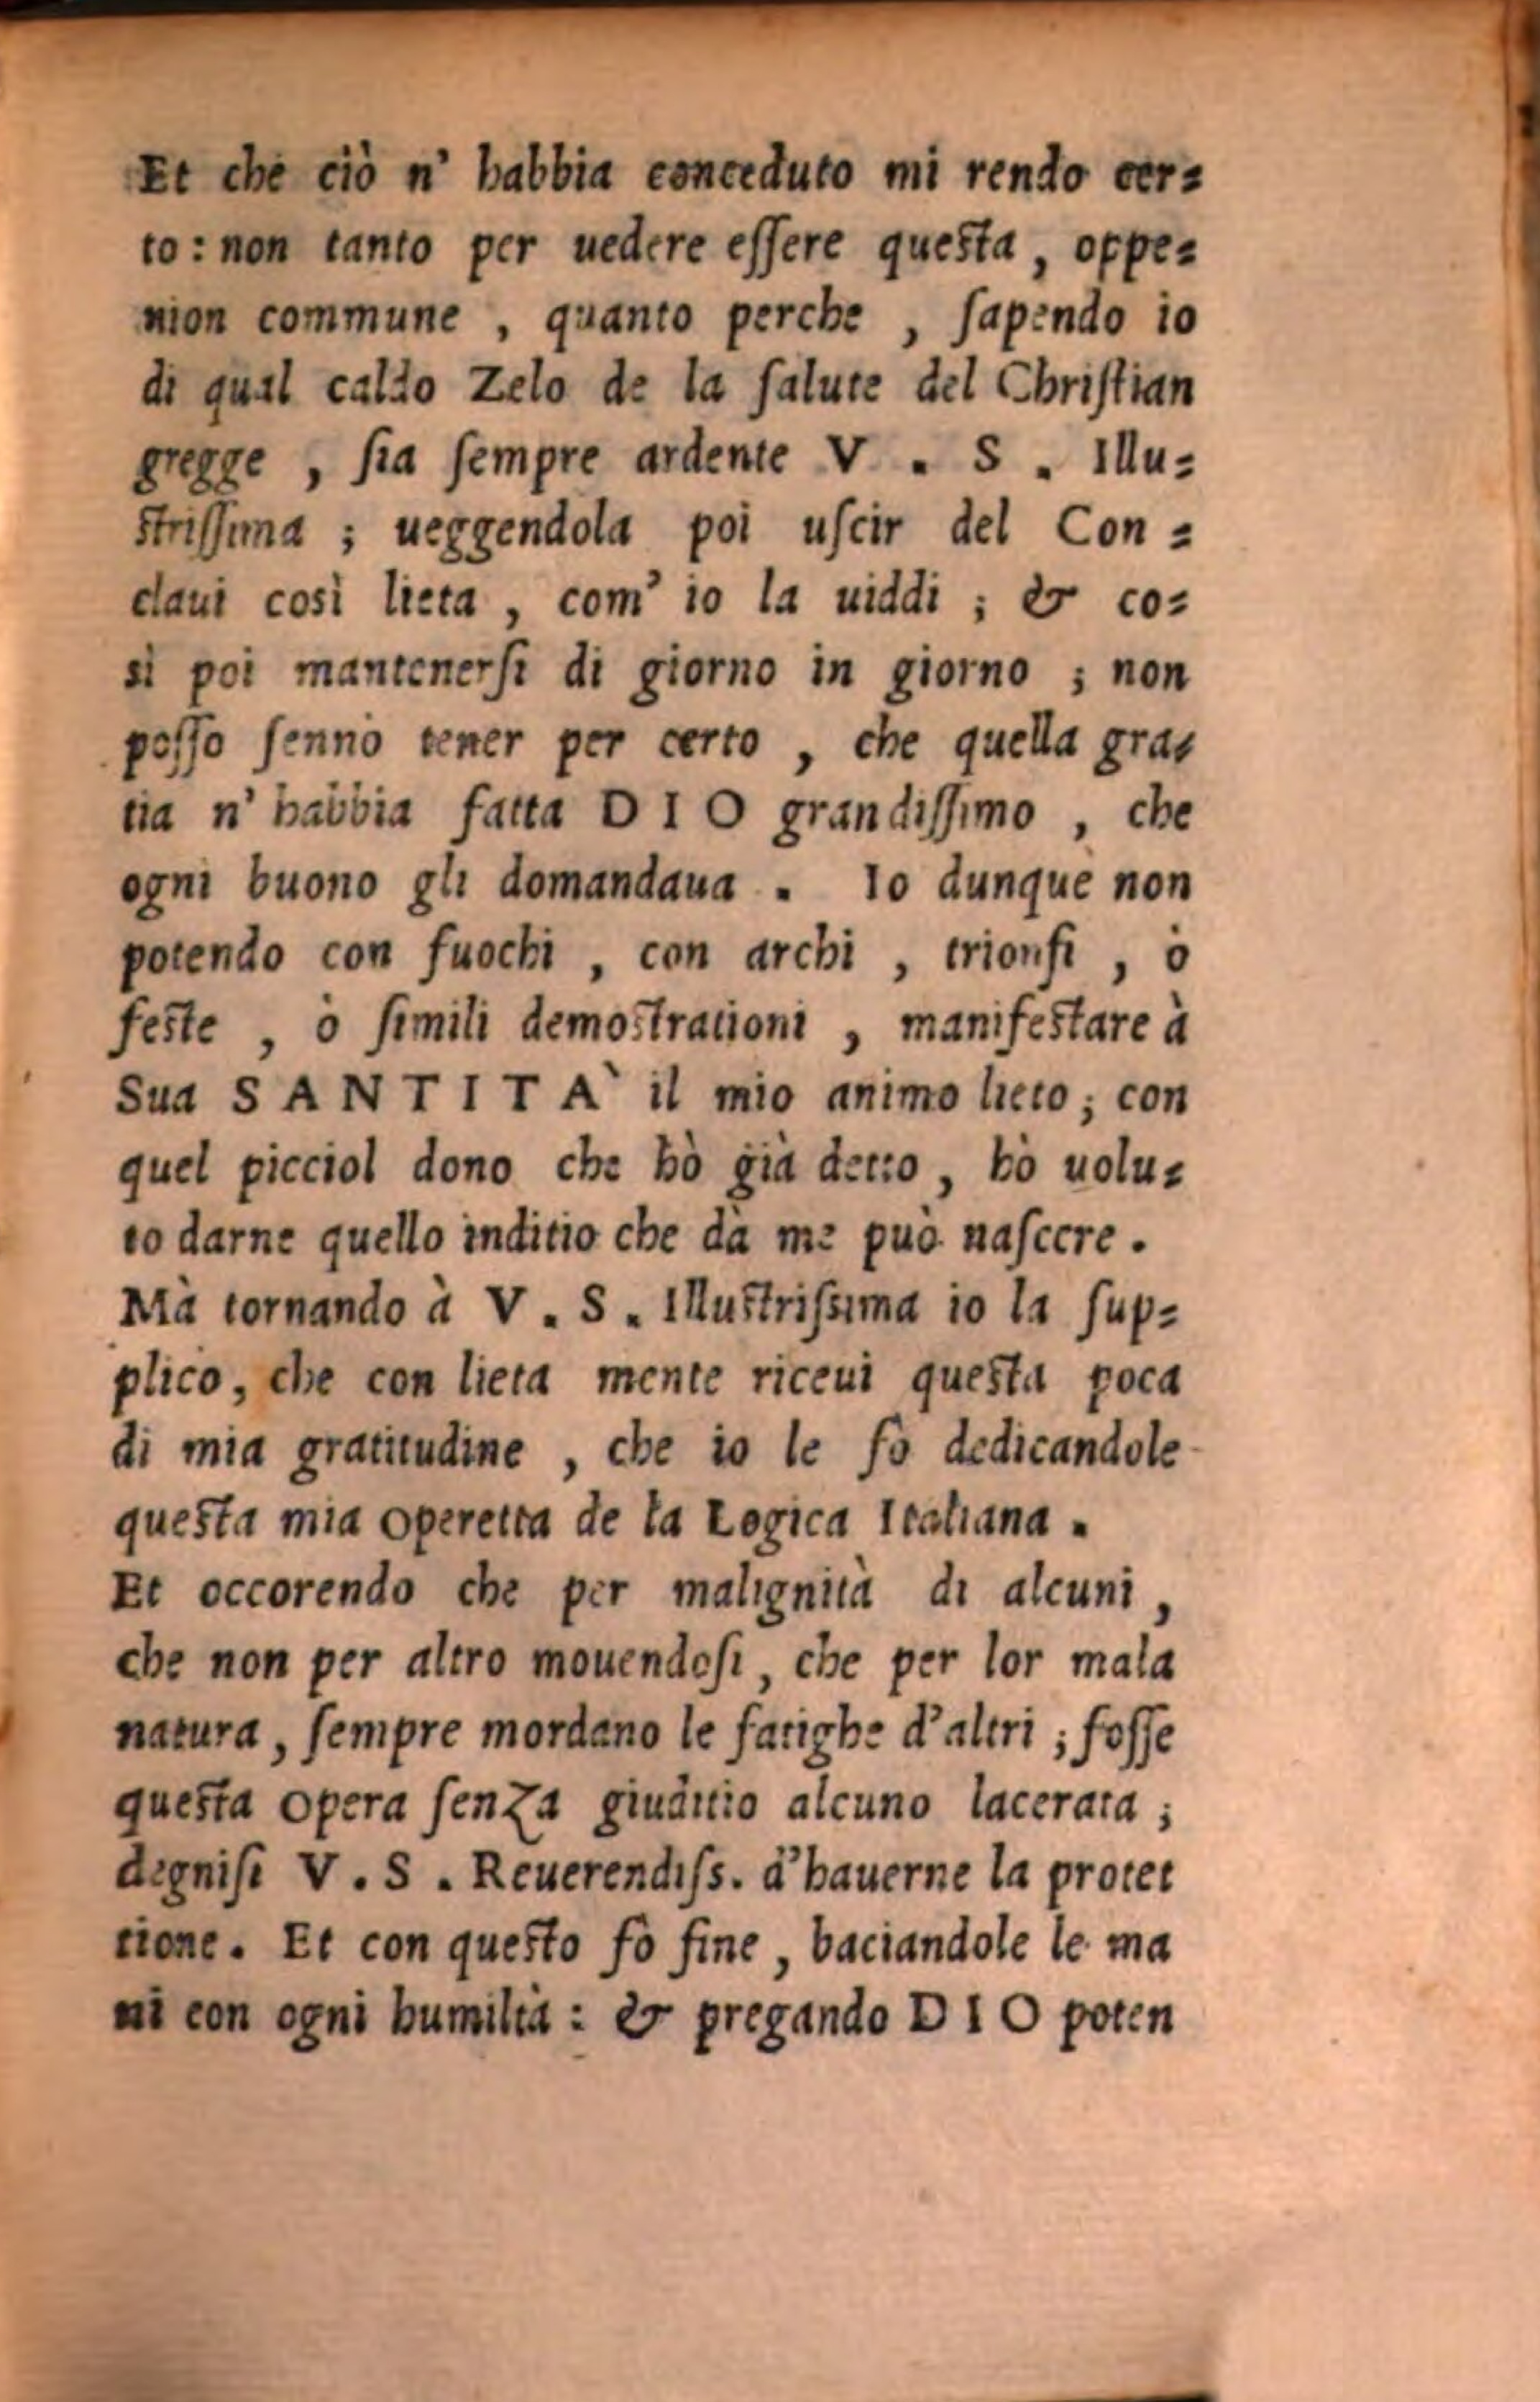 Et che ciò n' habbia conceduto mi rendo cer=
to: non tanto per uedere eſſere queſta, oppe=
nion commune, quanto perche, ſapendo io
di qual caldo Zelo de la ſalute del Chriſtian
gregge, ſia ſempre ardente V. S. Illu=
ſtriſſima; ueggendola poi uſcir del Con=
claui così lieta, com' io la uiddi; & co=
sì poi mantenerſi di giorno in giorno; non
poſſo ſennò tener per certo, che quella gra=
tia n' habbia fatta DIO grandiſſimo, che
ogni buono gli domandaua. Io dunque non
potendo con fuochi, con archi, trionfi, ò
feſte, ò ſimili demoſtrationi, manifeſtare à
Sua SANTITA` il mio animo lieto; con
quel picciol dono che hò già detto, hò uolu=
to darne quello inditio che dà me può naſcere.
Mà tornando à V. S. Illuſtriſsima io la ſup=
plico, che con lieta mente riceui queſta poca
di mia gratitudine, che io le fò dedicandole
queſta mia operetta de la Logica Italiana.
Et occorendo che per malignità di alcuni,
che non per altro mouendoſi, che per lor mala
natura, ſempre mordano le fatighe d'altri; foſſe
queſta opera ſenza giuditio alcuno lacerata;
degniſi V. S. Reuerendiſs. d'hauerne la protet
tione. Et con queſto fò fine, baciandole le ma
ni con ogni humiltà: & pregando DIO poten